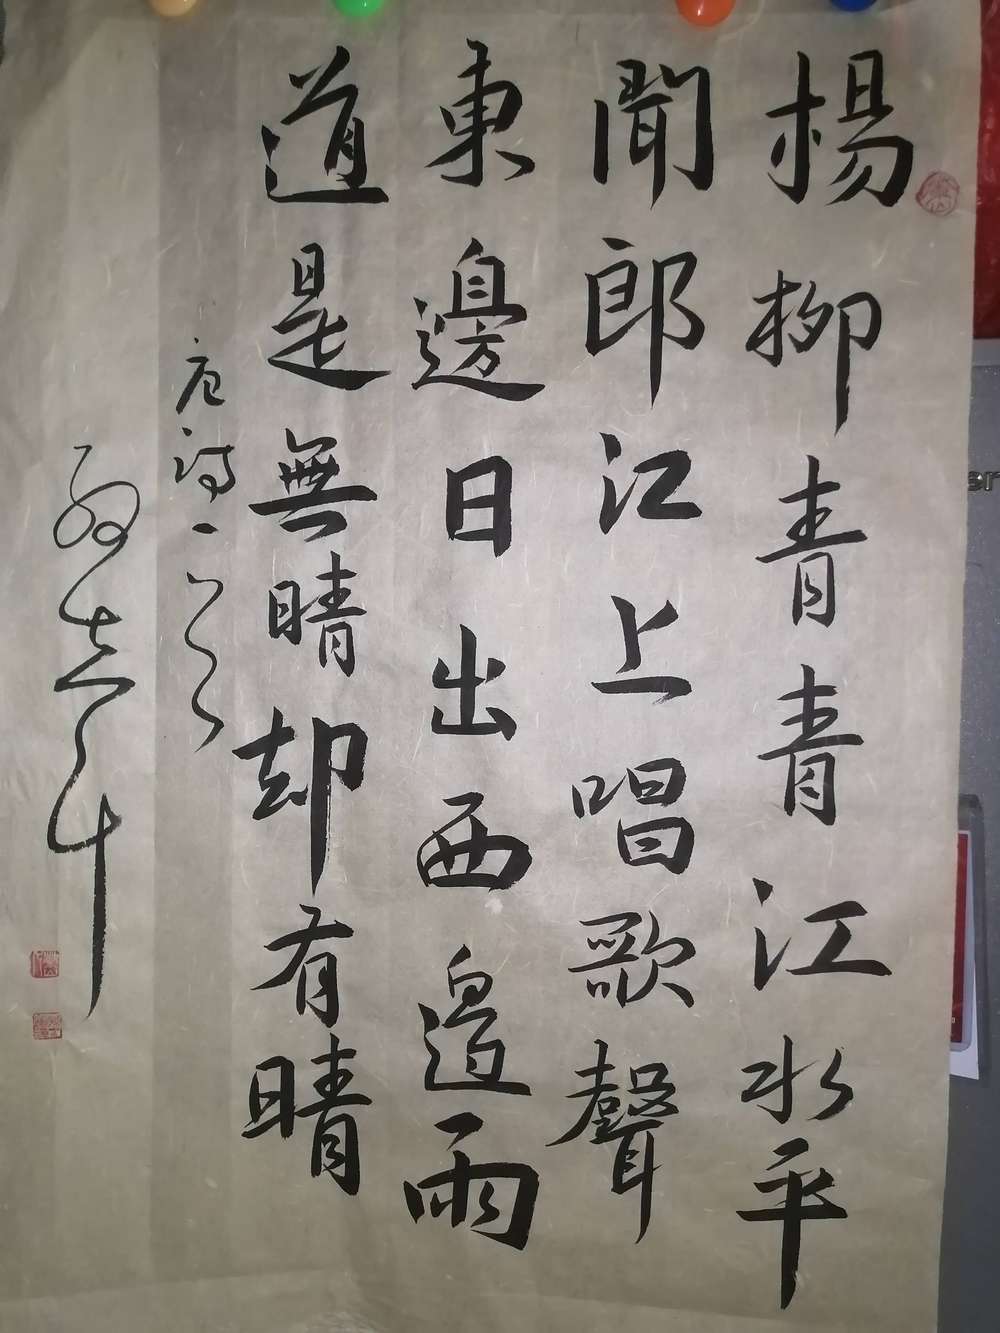 楊柳青青江水平
聞郎江上唱歌聲
東邊日出西邊雨
道是無晴却有晴
唐詩一首
er